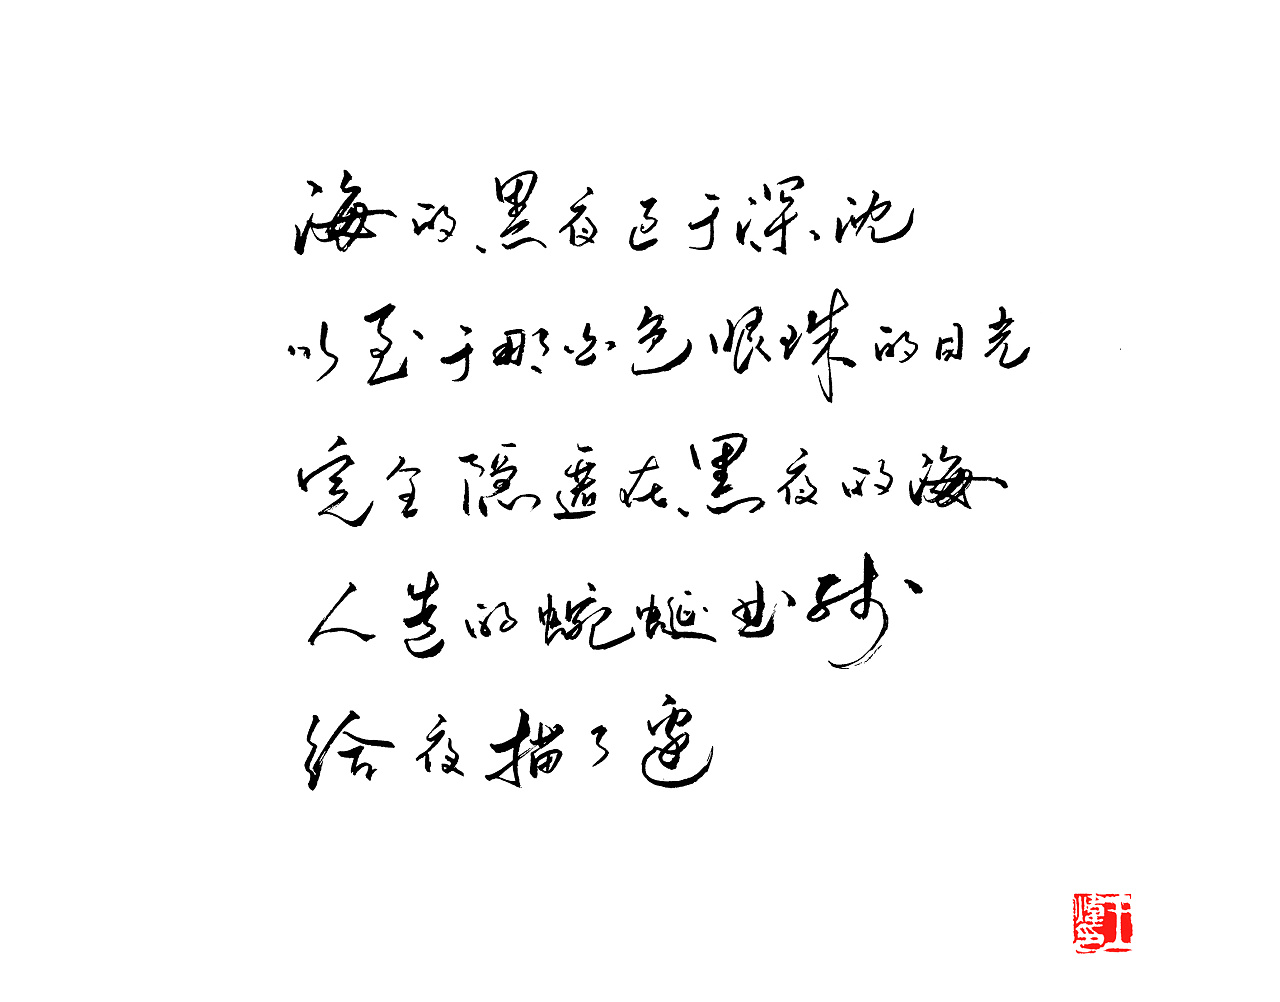 海的黑夜过于深沈
以至于那白色眼珠的目光
完全隐匿在黑夜的海
人造的蜿蜒曲线
给夜描了边